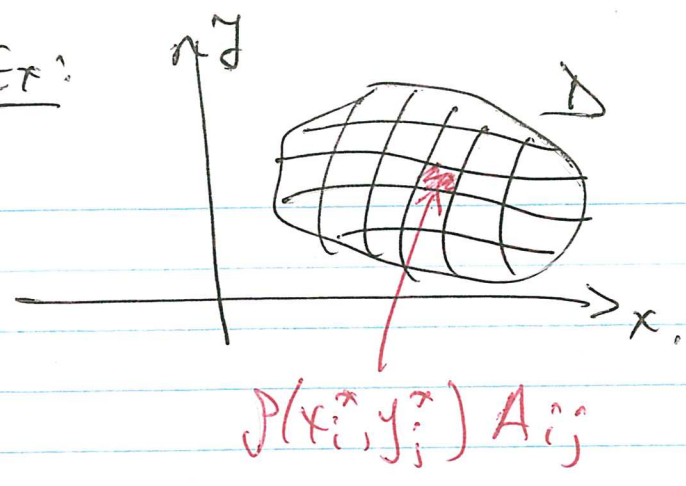 Ex:
y
D
x.
ρ(x_i^*, y_j^*) A_{ij}